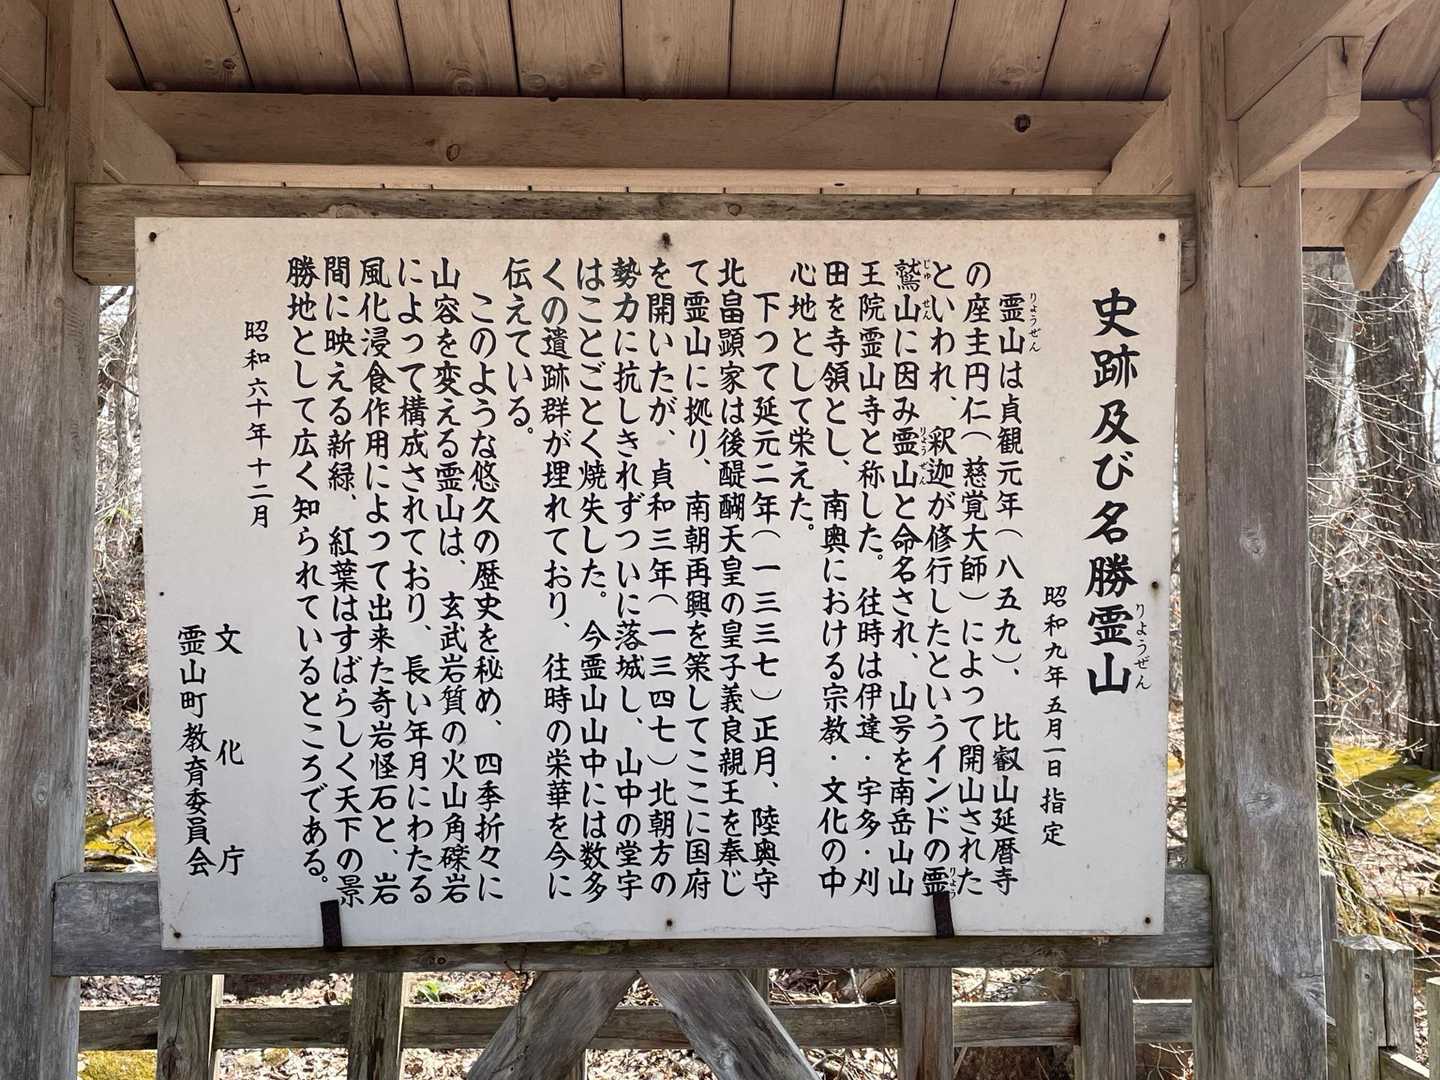 史跡及び名勝霊山
りょうぜん
昭和九年五月一日指定
りょうぜん
霊山は貞観元年（八五九）、比叡山延暦寺
の座主円仁（慈覚大師）によって開山された
といわれ、釈迦が修行したというインドの霊
りょう
じゅせん
りょうぜん
鷲山に因み霊山と命名され、山号を南岳山山
王院霊山寺と称した。往時は伊達・宇多・刈
田を寺領とし、南奥における宗教・文化の中
心地として栄えた。
下つて延元二年（一三三七）正月、陸奥守
北畠顕家は後醍醐天皇の皇子義良親王を奉じ
て霊山に拠り、南朝再興を策してここに国府
を開いたが、貞和三年（一三四七）北朝方の
勢力に抗しきれずついに落城し、山中の堂宇
はことごとく焼失した。今霊山山中には数多
くの遺跡群が埋れており、往時の栄華を今に
伝えている。
このような悠久の歴史を秘め、四季折々に
山容を変える霊山は、玄武岩質の火山角礫岩
によって構成されており、長い年月にわたる
風化浸食作用によって出来た奇岩怪石と、岩
間に映える新緑、紅葉はすばらしく天下の景
勝地として広く知られているところである。
昭和六十年十二月
文化庁
霊山町教育委員会